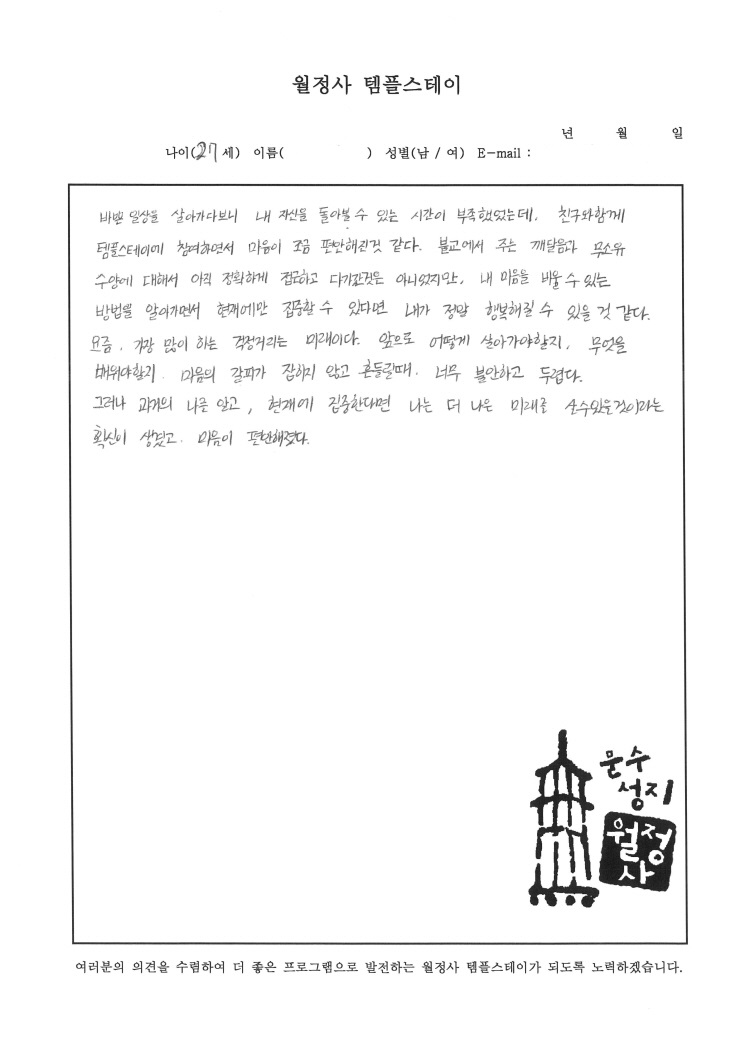 월정사 템플스테이
년 월 일
나이(27세) 이름( ) 성별(남 / 여) E-mail :
바쁜 일상을 살아가다보니 내 자신을 돌아볼 수 있는 시간이 부족했었는데, 친구와함께
템플스테이에 참여하면서 마음이 조금 편안해진것 같다. 불교에서 주는 깨달음과 무소유
수양에 대해서 아직 정확하게 접근하고 다가간것은 아니었지만, 내 마음을 비울 수 있는
방법을 알아가면서 현재에만 집중할 수 있다면 내가 정말 행복해질 수 있을 것 같다.
요즘, 가장 많이 하는 걱정거리는 미래이다. 앞으로 어떻게 살아가야할지, 무엇을
배워야할지. 마음의 갈피가 잡히지 않고 흔들릴때. 너무 불안하고 두렵다.
그러나 과거의 나를 알고, 현재에 집중한다면 나는 더 나은 미래로 살수있을것이라는
확신이 생겼고. 마음이 편안해졌다.
문수
성지
월정
사
여러분의 의견을 수렴하여 더 좋은 프로그램으로 발전하는 월정사 템플스테이가 되도록 노력하겠습니다.